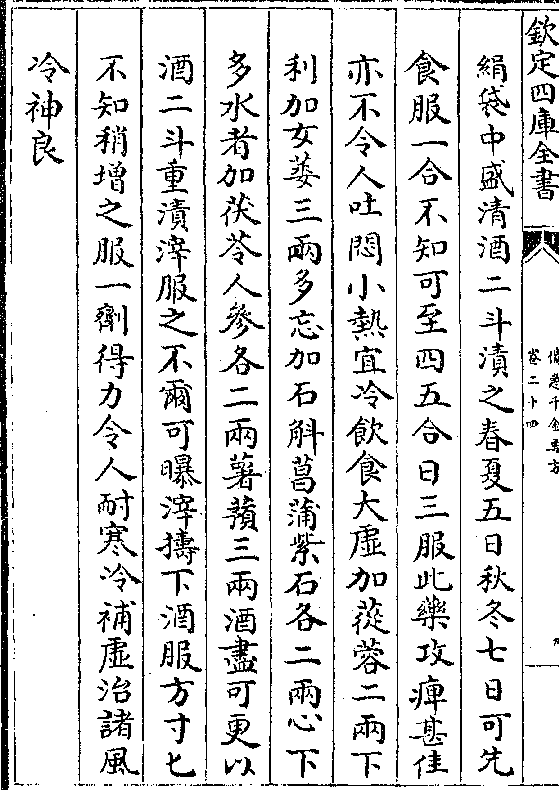 欽定四庫全書
備急千金要方
卷二十四
絹袋中盛清酒二斗漬之春夏五日秋冬七日可先
食服一合不知可至四五合日三服此藥攻痺甚佳
亦不令人吐悶小熱宜冷飲食大虛加蓯蓉二兩下
利加女萎三兩多忘加石斛菖蒲紫石各二兩心下
多水者加茯苓人參各二兩薯蕷三兩酒盡可更以
酒二斗重漬滓服之不爾可曝滓擣下酒服方寸匕
不知稍增之服一劑得力令人耐寒冷補虛治諸風
冷神良